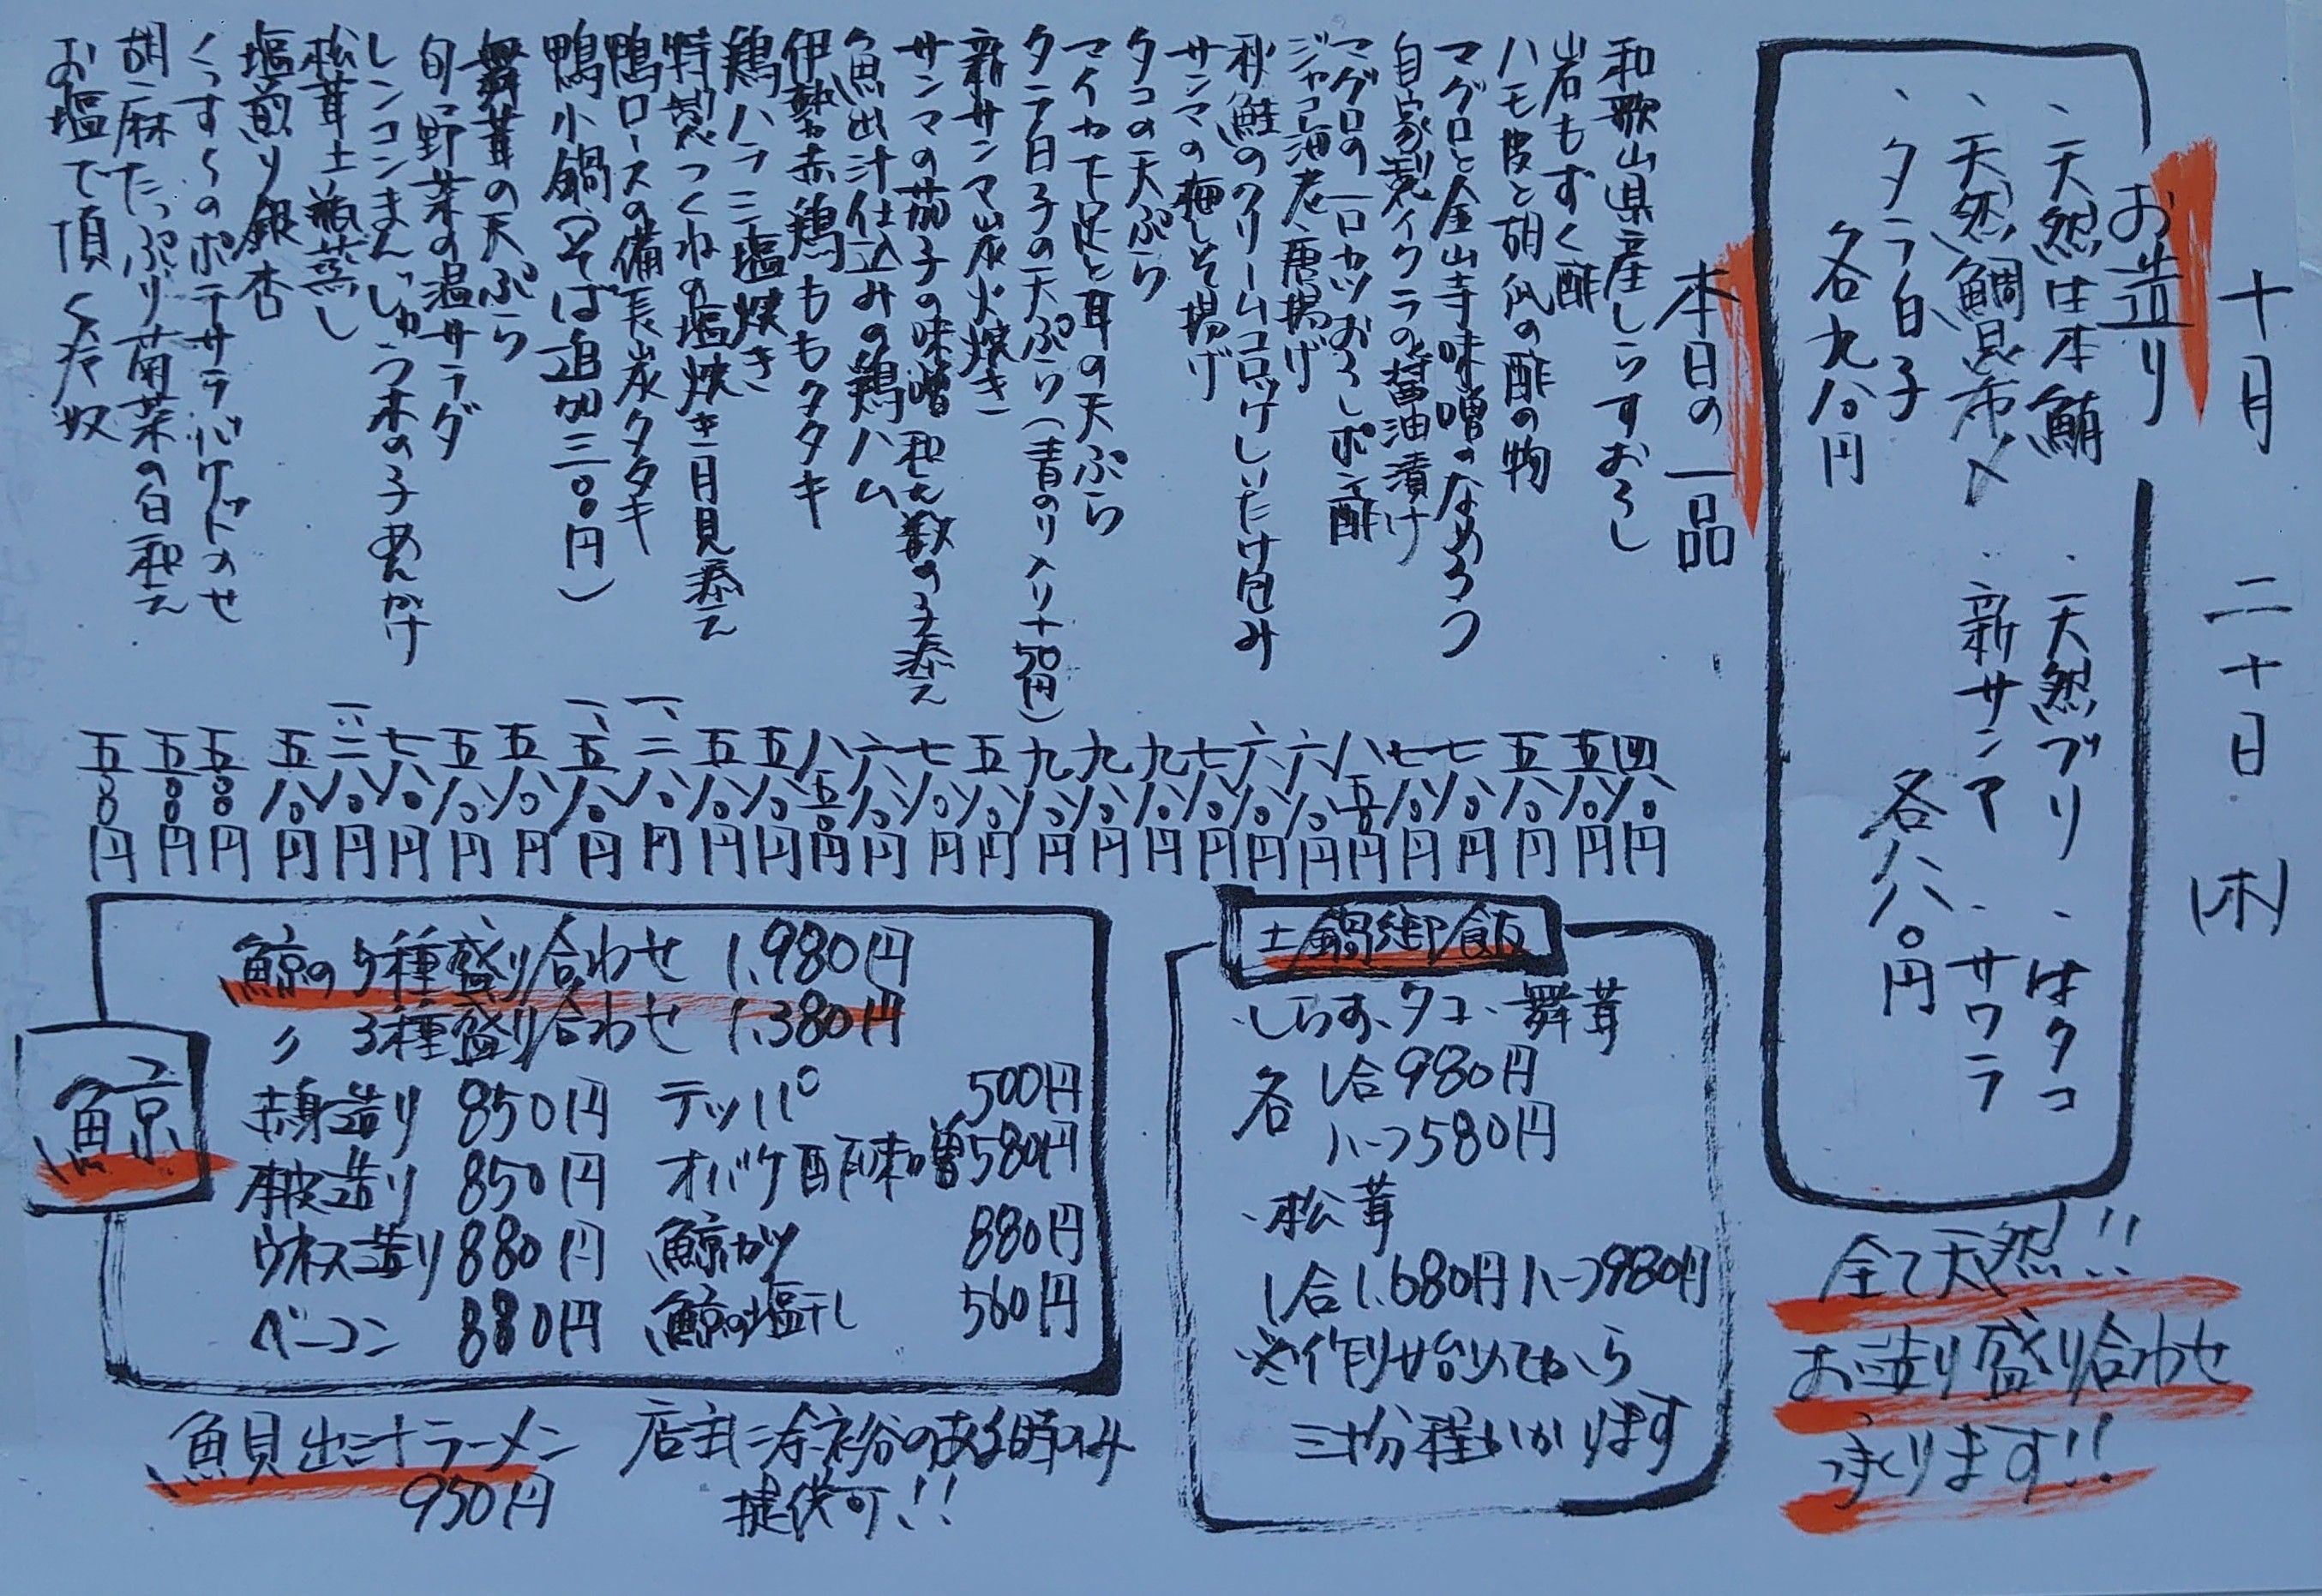 十月 二十日 (木)
お造り
・天然生本鮪 ・天然ブリ ・はタコ
・天然鯛昆布〆 ・新サンマ ・サワラ
・タラ白子
各九八〇円
各八八〇円
全て天然!!
お造り盛り合わせ
承ります!!
本日の一品
和歌山県産しらすおろし 四八〇円
岩もずく酢 五八〇円
ハモ皮と胡瓜の酢の物 五八〇円
マグロと金山寺味噌のなめろう 七八〇円
自家製イクラの醤油漬け 七八〇円
マグロの一口カツおろしポン酢 八五〇円
ジャコ海老唐揚げ 六八〇円
秋鮭のクリームコロッケしいたけ包み 六八〇円
サンマの梅しそ揚げ 七八〇円
タコの天ぷら 九八〇円
マイカ下足と耳の天ぷら 九八〇円
タラ白子の天ぷら(青のり入り+50円) 九八〇円
新サンマ炭火焼き 五八〇円
サンマの茄子の味噌和え数の子添え 七八〇円
魚出汁仕込みの鶏ハム 六八〇円
伊勢赤鶏ももタタキ 八五〇円
鶏ハラミ塩焼き 五八〇円
特製つくねの塩焼き月見添え 五八〇円
鴨ロースの備長炭タタキ 一、二八〇円
鴨小鍋(そば追加三〇〇円) 一、五八〇円
舞茸の天ぷら 五八〇円
旬野菜の温サラダ 五八〇円
レンコンまんじゅう木の子あんかけ 七八〇円
松茸土瓶蒸し 一、二八〇円
塩煎り銀杏 五八〇円
くっすくのポテサラバケットのせ 五〇〇円
胡麻たっぷり菊菜の白和え 五〇〇円
お塩で頂く冷奴 五〇〇円
土鍋御飯
・しらす・タコ・舞茸
各 1合980円
ハーフ580円
・松茸
1合1,680円 ハーフ980円
※作り始めてから
三十分程かかります
鯨
鯨の5種盛り合わせ 1,980円
〃 3種盛り合わせ 1,380円
赤身造り 850円 テッパ 500円
本皮造り 850円 オバケ酢味噌 580円
ウネス造り 880円 鯨カツ 880円
ベーコン 880円 鯨の塩干し 560円
魚貝出汁ラーメン
950円
店主に余裕のある時のみ
提供可!!